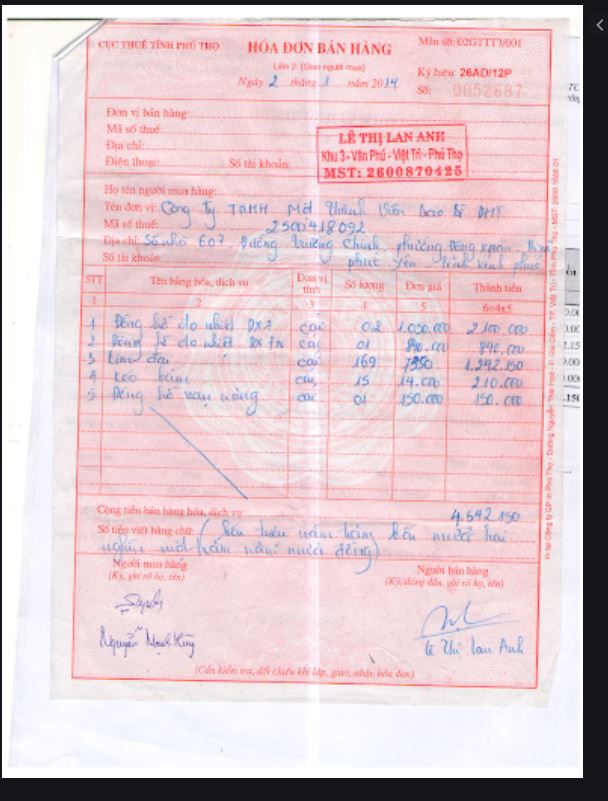 CỤC THUẾ TỈNH PHÚ THỌ
HÓA ĐƠN BÁN HÀNG
Liên 2: (Giao người mua)
Ngày 2 tháng 1 năm 2014
Mẫu số: 02GTTT3/001
Ký hiệu: 26AD/12P
Số: 0052687
Đơn vị bán hàng:
Mã số thuế:
Địa chỉ:
Điện thoại: Số tài khoản:
LÊ THỊ LAN ANH
Khu 3 - Vân Phú - Việt Trì - Phú Thọ
MST: 2600870425
Họ tên người mua hàng:
Tên đơn vị: Công ty TNHH Một Thành Viên Bao Bì
Mã số thuế: 2500418092
Địa chỉ: Số nhà 607, Đường Trường Chinh, phường Đồng xuân
phúc yên tỉnh vĩnh phúc
Số tài khoản
STT Tên hàng hóa, dịch vụ Đơn vị tính Số lượng Đơn giá Thành tiền
1 2 3 4 5 6=4x5
1 Đồng hồ đo nhiệt cái 02 1.050.000 2.100.000
2 Đồng hồ đo nhiệt cái 01 840.000 840.000
3 Kim đai cái 169 7350 1.242.150
4 Keo bấm cái 15 14.000 210.000
5 Đồng hồ vạn năng cái 01 150.000 150.000
Cộng tiền bán hàng hóa, dịch vụ 4.542.150
Số tiền viết bằng chữ: (bốn triệu năm trăm bốn mươi hai
nghìn một trăm năm mươi đồng)
Người mua hàng
(Ký, ghi rõ họ, tên)
Người bán hàng
(Ký, đóng dấu, ghi rõ họ, tên)
Nguyễn Mạnh Hùng
Lê Thị Lan Anh
(Cần kiểm tra, đối chiếu khi lập, giao, nhận hóa đơn)